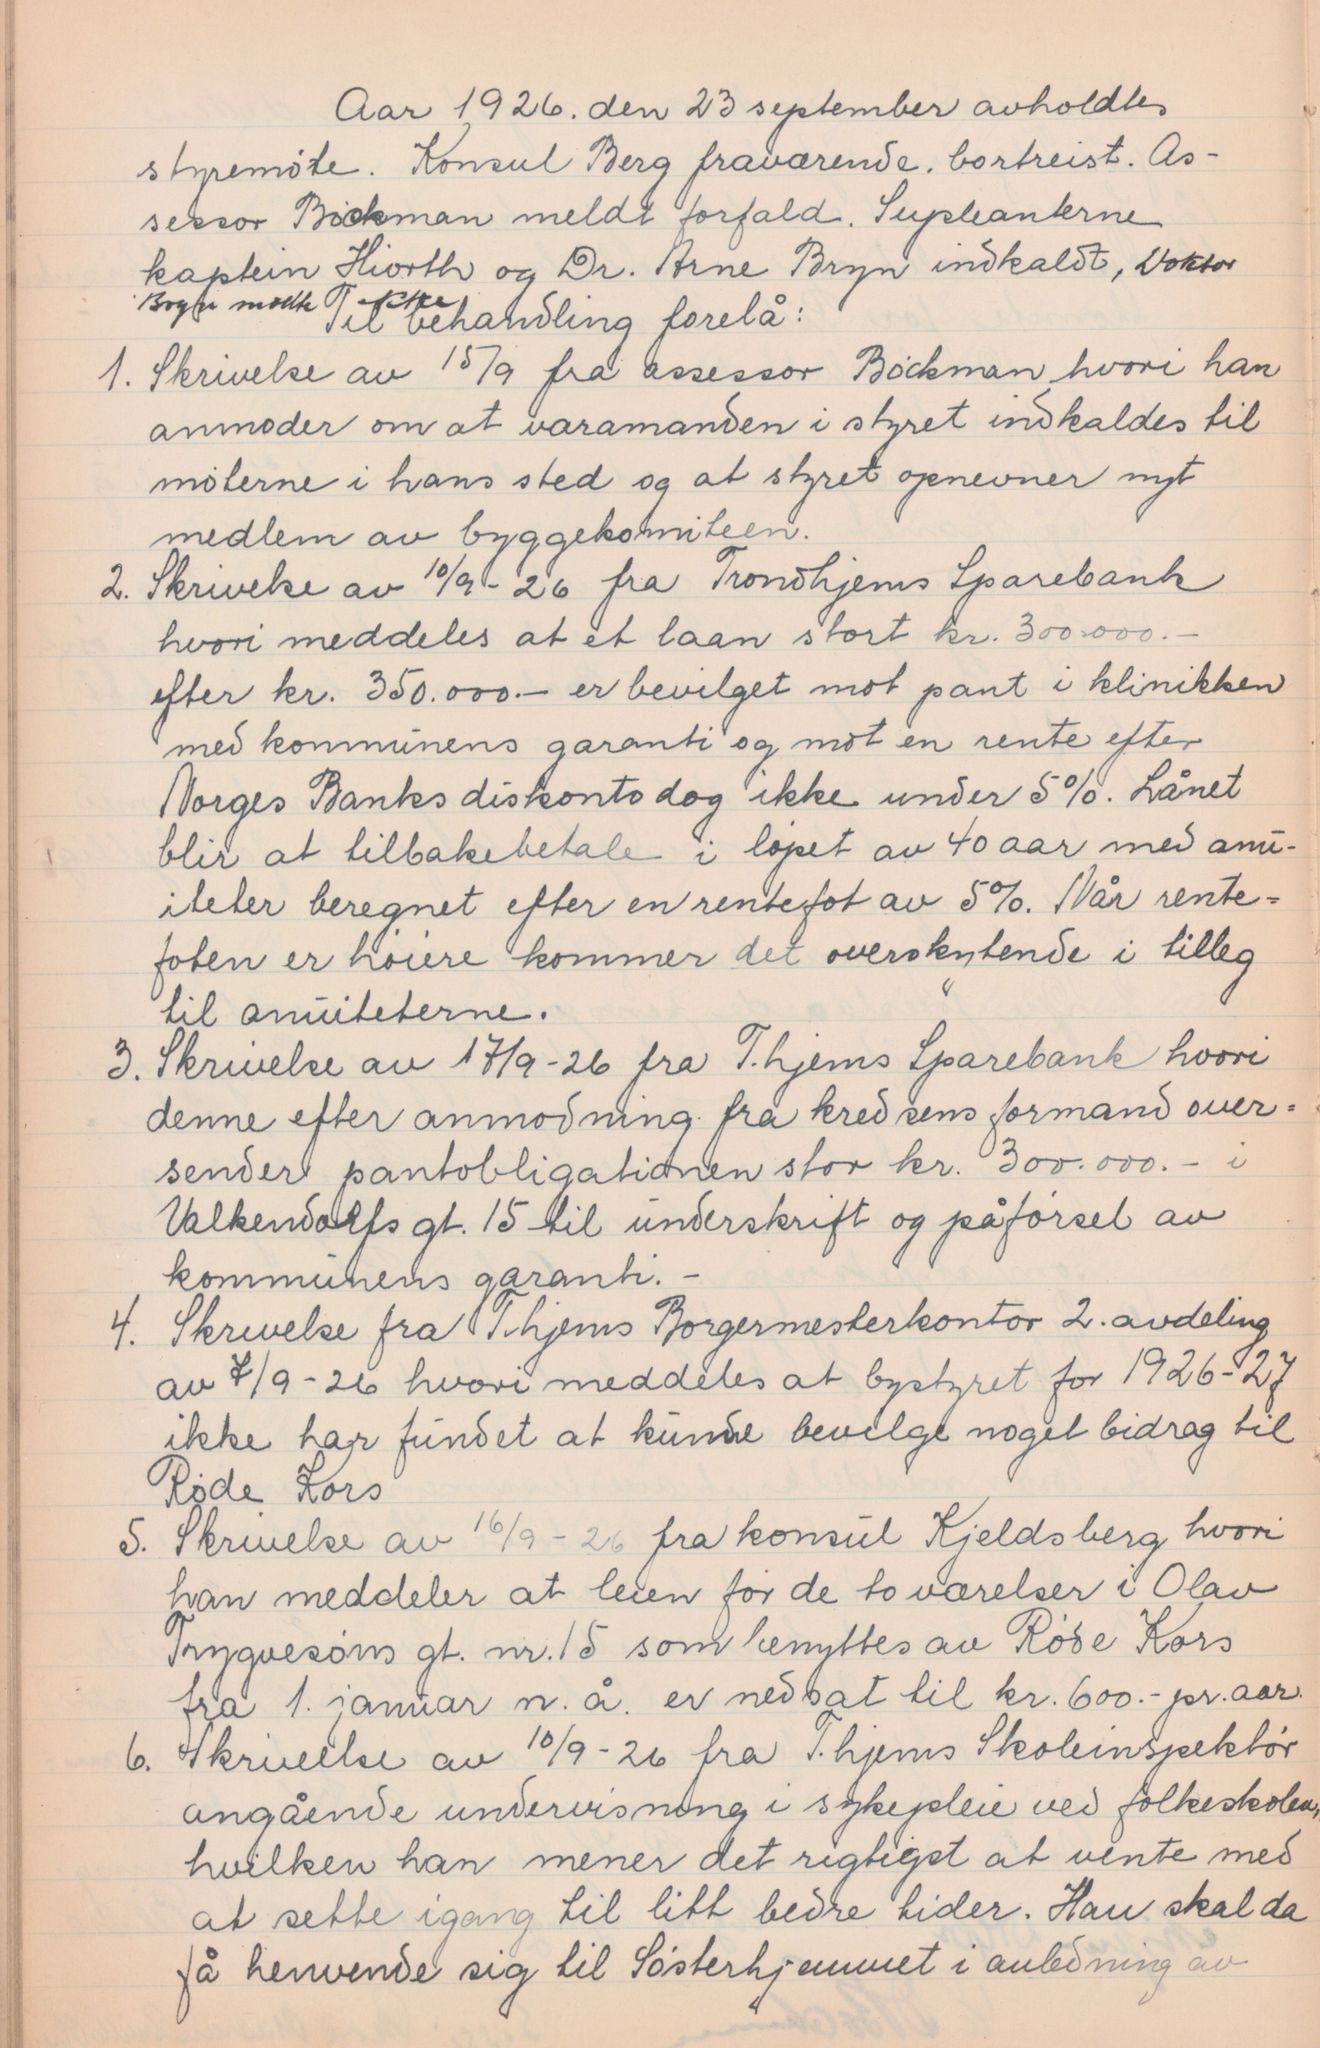 Aar 1926. den 23 september avholdtes
styremøte. Konsul Berg fraværende, bortreist. As-
sessor Böckman meldt forfald. Supleanterne
kaptein Hiorth og Dr. Arne Bryn indkaldt, Doktor
Bryn mødte ikke
Til behandling forelå:
1. Skrivelse av 15/9 fra assessor Böckman hvori han
anmoder om at varamanden i styret indkaldes til
møterne i hans sted og at styret opnevner nyt
medlem av byggekomiteen.
2. Skrivelse av 10/9-26 fra Trondhjems Sparebank
hvori meddeles at et laan stort kr. 300.000.-
efter kr. 350.000.- er bevilget mot pant i klinikken
med kommunens garanti og mot en rente efter
Norges Banks diskonto dog ikke under 5%. Lånet
blir at tilbakebetale i løpet av 40 aar med anu-
iteter beregnet efter en rentefot av 5%. Når rente=
foten er høiere kommer det overskytende i tilleg
til anuiteterne.
3. Skrivelse av 17/9-26 fra T.hjems Sparebank hvori
denne efter anmodning fra kredsens formand over=
sender pantobligationen stor kr. 300.000.- i
Valkendorfs gt. 15 til underskrift og påførsel av
kommunens garanti.-
4. Skrivelse fra T.hjems Borgermesterkontor 2. avdeling
av 7/9-26 hvori meddeles at bystyret for 1926-27
ikke har fundet at kunde bevilge noget bidrag til
Røde Kors
5. Skrivelse av 16/9-26 fra konsul Kjeldsberg hvori
han meddeler at leien for de to værelser i Olav
Trygvesøns gt. nr. 15 som benyttes av Røde Kors
fra 1. januar n. å. er nedsat til kr. 600.- pr. aar.
6. Skrivelse av 10/9-26 fra T.hjems Skoleinspektør
angående undervisning i sykepleie ved folkeskolen,
hvilken han mener det rigtigst at vente med
at sette igang til litt bedre tider. Han skal da
få henvende sig til Søsterhjemmet i anledning av